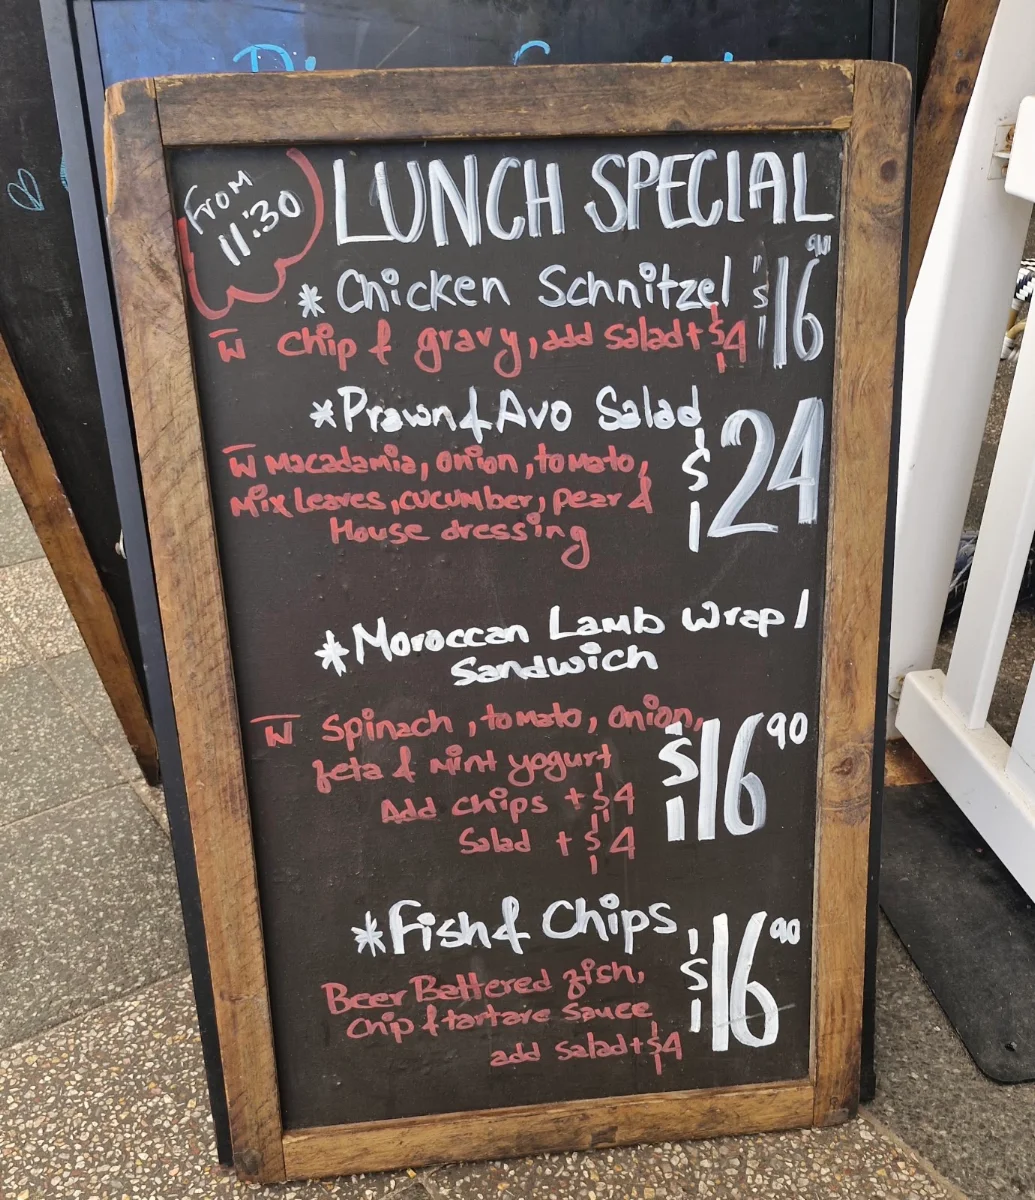 From
11:30
LUNCH SPECIAL
* Chicken Schnitzel $16 90
W chip & gravy, add salad + $4
* Prawn & Avo Salad
$24
W Macadamia, onion, tomato,
Mix leaves, cucumber, pear &
House dressing
* Moroccan Lamb Wrap /
Sandwich
W Spinach, tomato, onion,
feta & Mint yogurt
$16 90
Add chips + $4
Salad + $4
* Fish & Chips
$16 90
Beer Battered fish,
chip & tartare sauce
add salad + $4